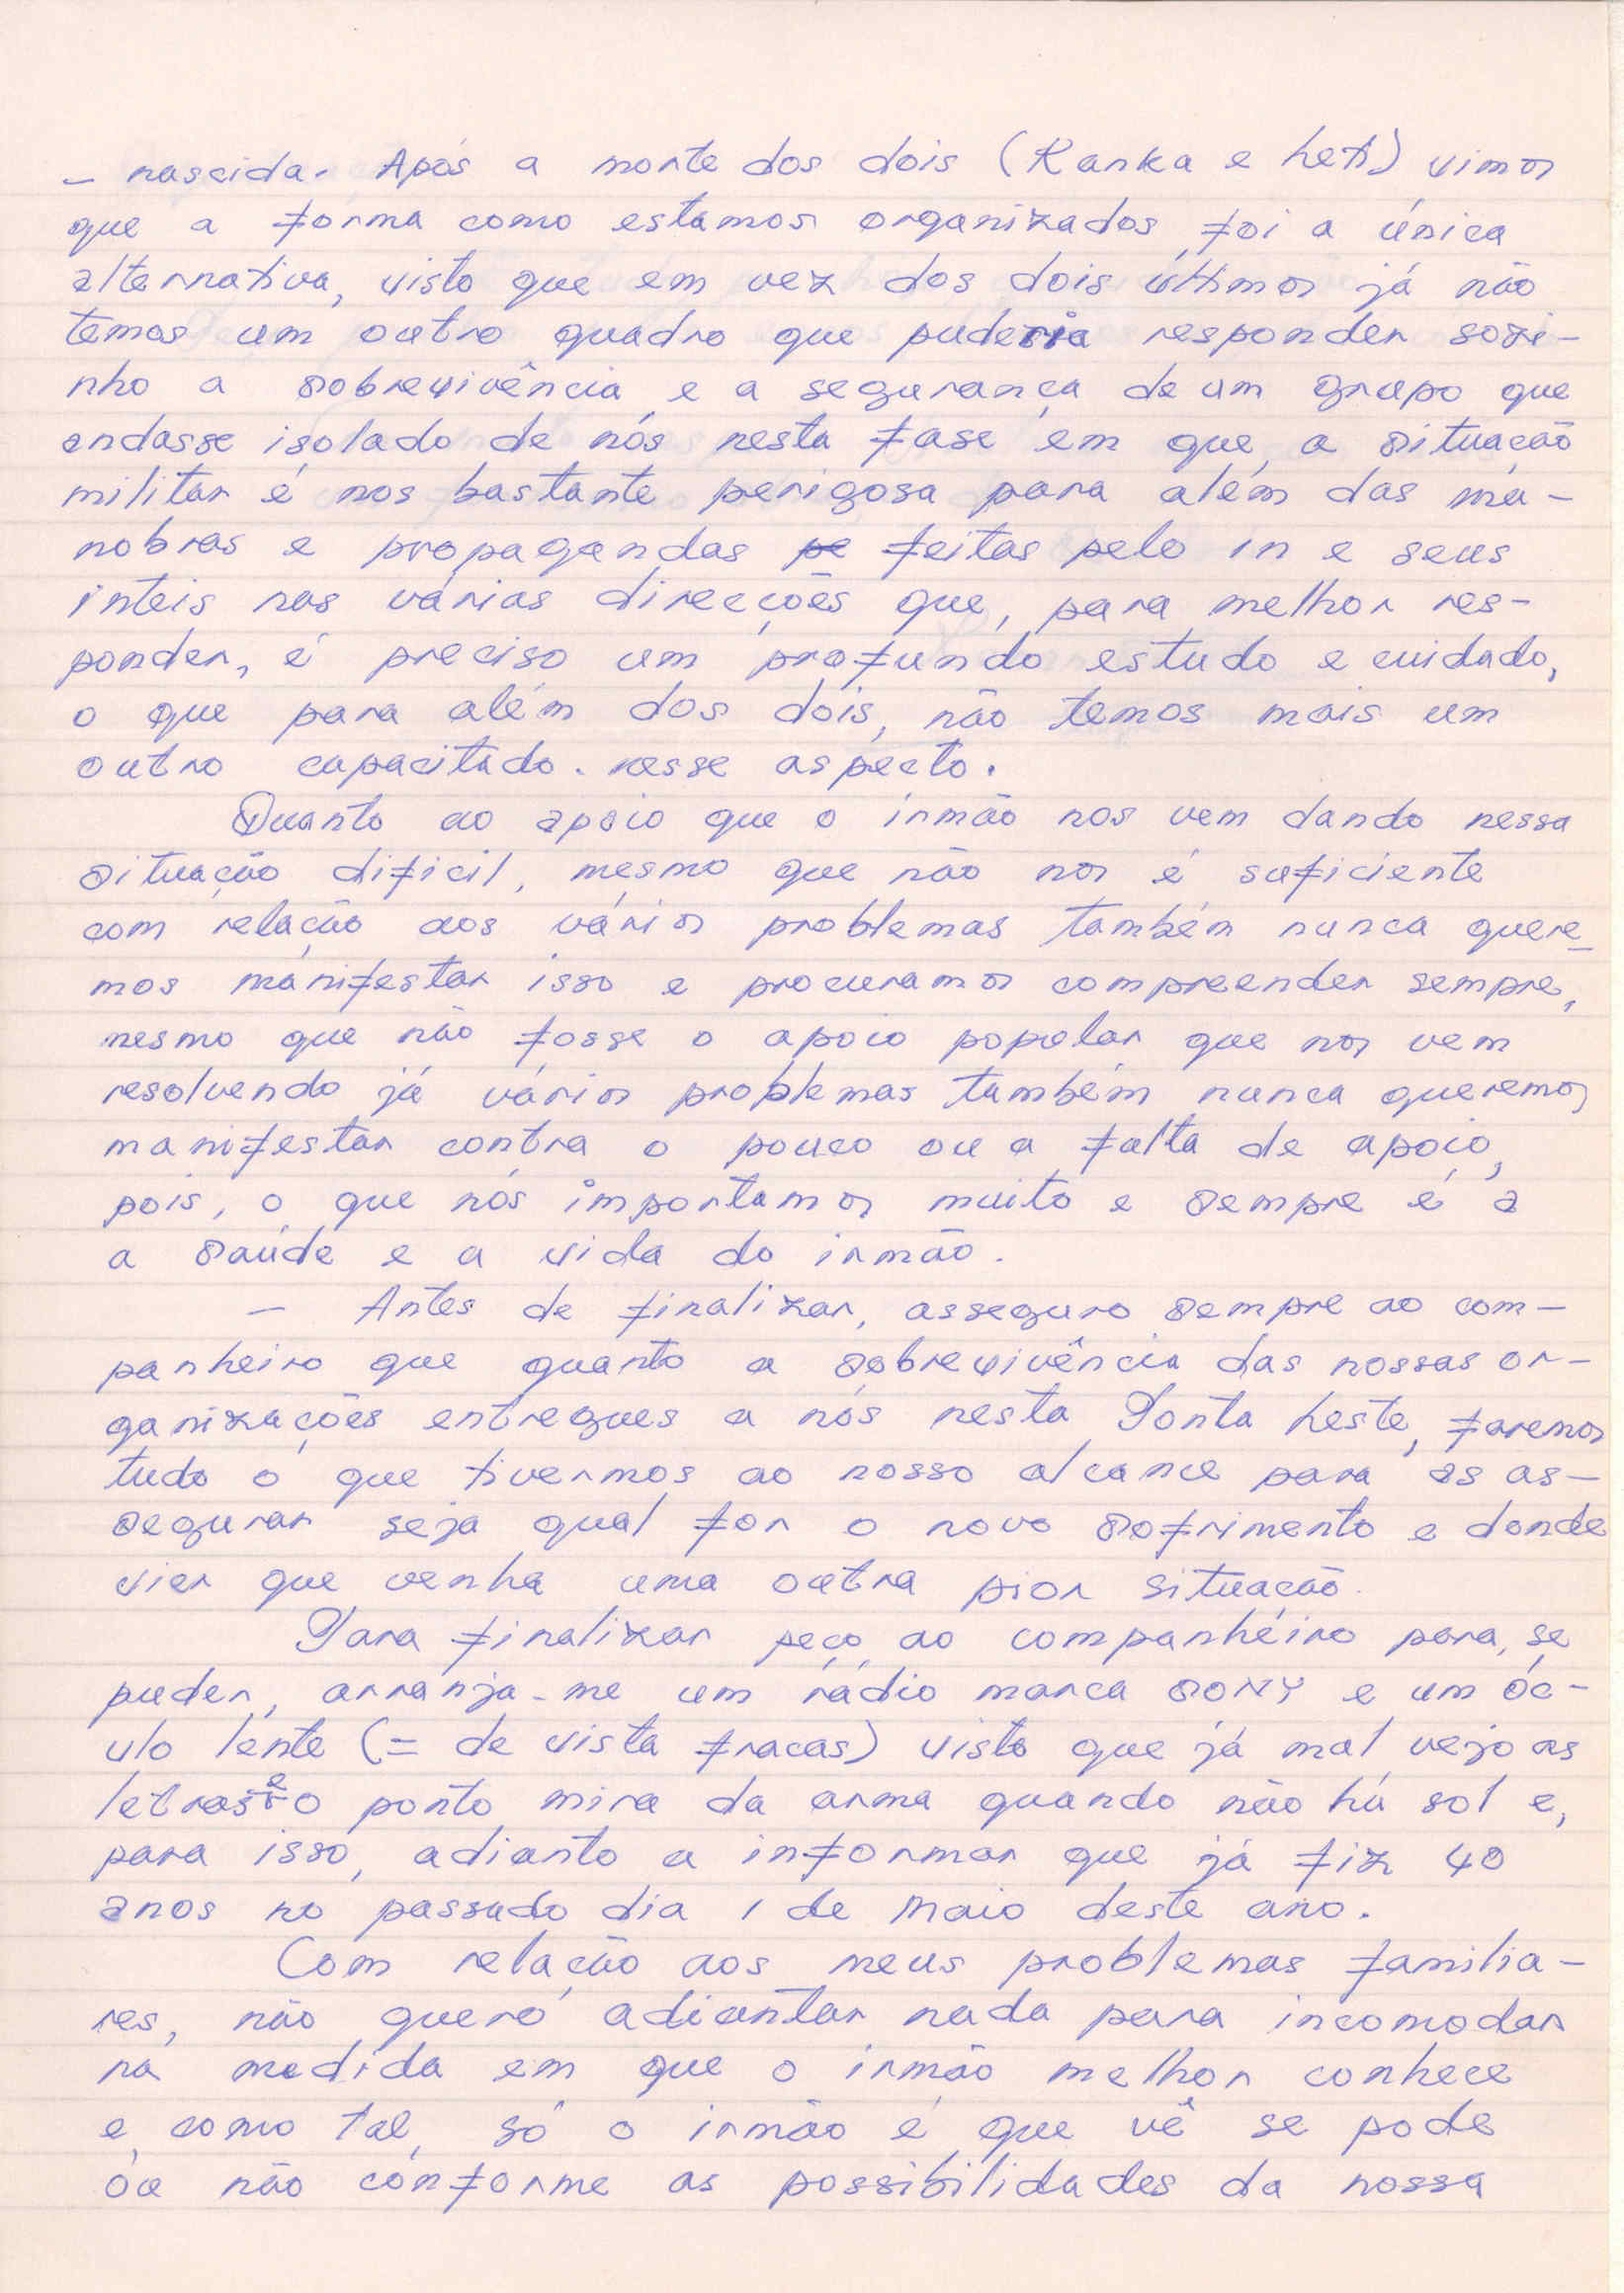 - nascida. Após a morte dos dois (Ranka e Leti) vimos
que a forma como estamos organizados foi a única
alternativa, visto que em vez dos dois últimos já não
temos um outro quadro que puderia responder sozi-
nho a sobrevivência e a segurança de um grupo que
andasse isolado de nós nesta fase em que, a situação
militar é nos bastante perigosa para além das ma-
nobras e propagandas pe feitas pelo in e seus
inteis nas várias direcções que, para melhor res-
ponder, é preciso um profundo estudo e cuidado,
o que para além dos dois, não temos mais um
outro capacitado. nesse aspecto.
Quanto ao apoio que o irmão nos vem dando nessa
situação difícil, mesmo que não nos é suficiente
com relação aos vários problemas também nunca quere-
mos manifestar isso e procuramos compreender sempre,
mesmo que não fosse o apoio popular que nos vem
resolvendo já vários problemas também nunca queremos
manifestar contra o pouco ou a falta de apoio,
pois, o que nós importamos muito e sempre é a
a saúde e a vida do irmão.
- Antes de finalizar, asseguro sempre ao com-
panheiro que quanto a sobrevivência das nossas or-
ganizações entregues a nós nesta Ponta Leste, faremos
tudo o que tivermos ao nosso alcance para as as-
segurar seja qual for o novo sofrimento e donde
vier que venha uma outra pior situação.
Para finalizar peço ao companheiro para, se
puder, arranja-me um rádio marca SONY e um óc-
ulo lente (= de vista fracas) visto que já mal vejo as
letras e o ponto mira da arma quando não há sol e,
para isso, adianto a informar que já fiz 40
anos no passado dia 1 de Maio deste ano.
Com relação aos meus problemas familia-
res, não quero adiantar nada para incomodar
na medida em que o irmão melhor conhece
e, como tal, só o irmão é que vê se pode
ou não conforme as possibilidades da nossa